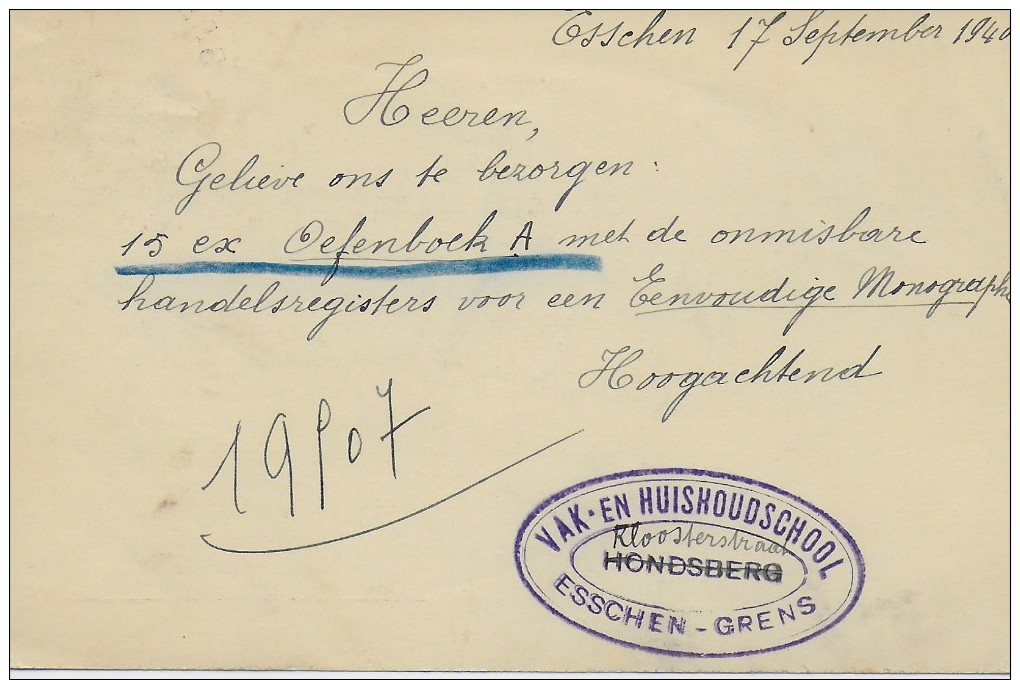 Esschen 17 September 1940
Heeren,
Gelieve ons te bezorgen:
15 ex Oefenboek A met de onmisbare
handelsregisters voor een Eenvoudige Monographie
Hoogachtend
VAK- EN HUISHOUDSCHOOL
Kloosterstraat
HONDSBERG
ESSCHEN - GRENS